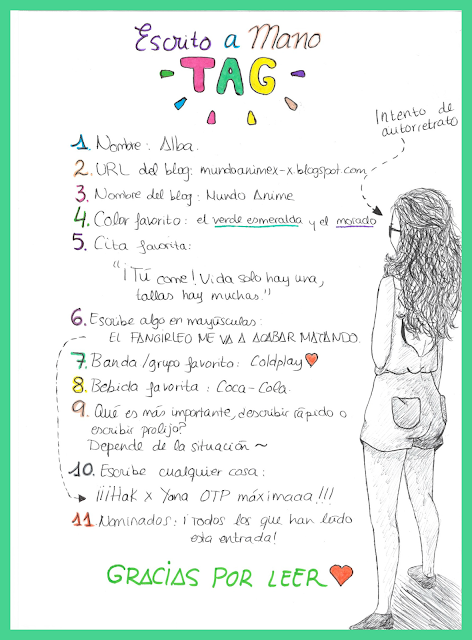 Escrito a Mano
TAG
Intento de
autorretrato
1. Nombre: Alba.
2. URL del blog: mundoanimex-x.blogspot.com
3. Nombre del blog: Mundo Anime
4. Color favorito: el verde esmeralda y el morado
5. Cita favorita:
"¡Tú come! Vida solo hay una,
tallas hay muchas."
6. Escribe algo en mayúsculas:
EL FANGIRLEO ME VA A ACABAR MATANDO.
7. Banda/grupo favorito: Coldplay
8. Bebida favorita: Coca-Cola.
9. Qué es más importante, describir rápido o
escribir prolijo?
Depende de la situación ~
10. Escribe cualquier cosa:
¡¡¡Hak x Yona OTP máximaaa!!!
11. Nominados: ¡Todos los que han leído
esta entrada!
GRACIAS POR LEER